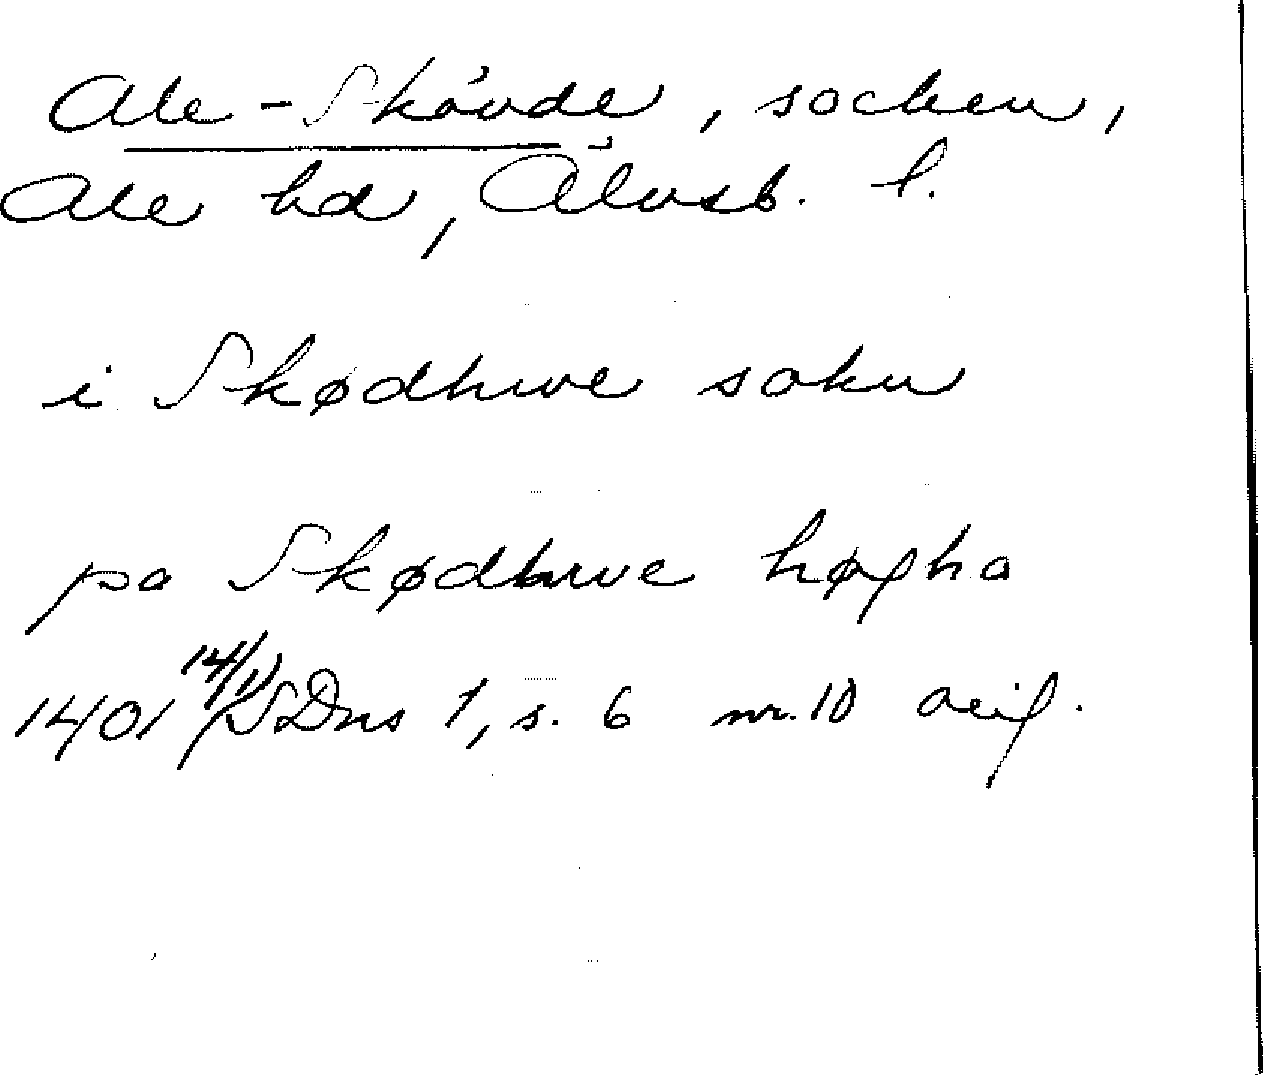 Ale-Skövde, socken,
Ale hd, Älvsb. l.
i Skødhwe sokn
pa Skødhwe høgha
1401 14/11 SDns 1, s. 6 nr. 10 orig.